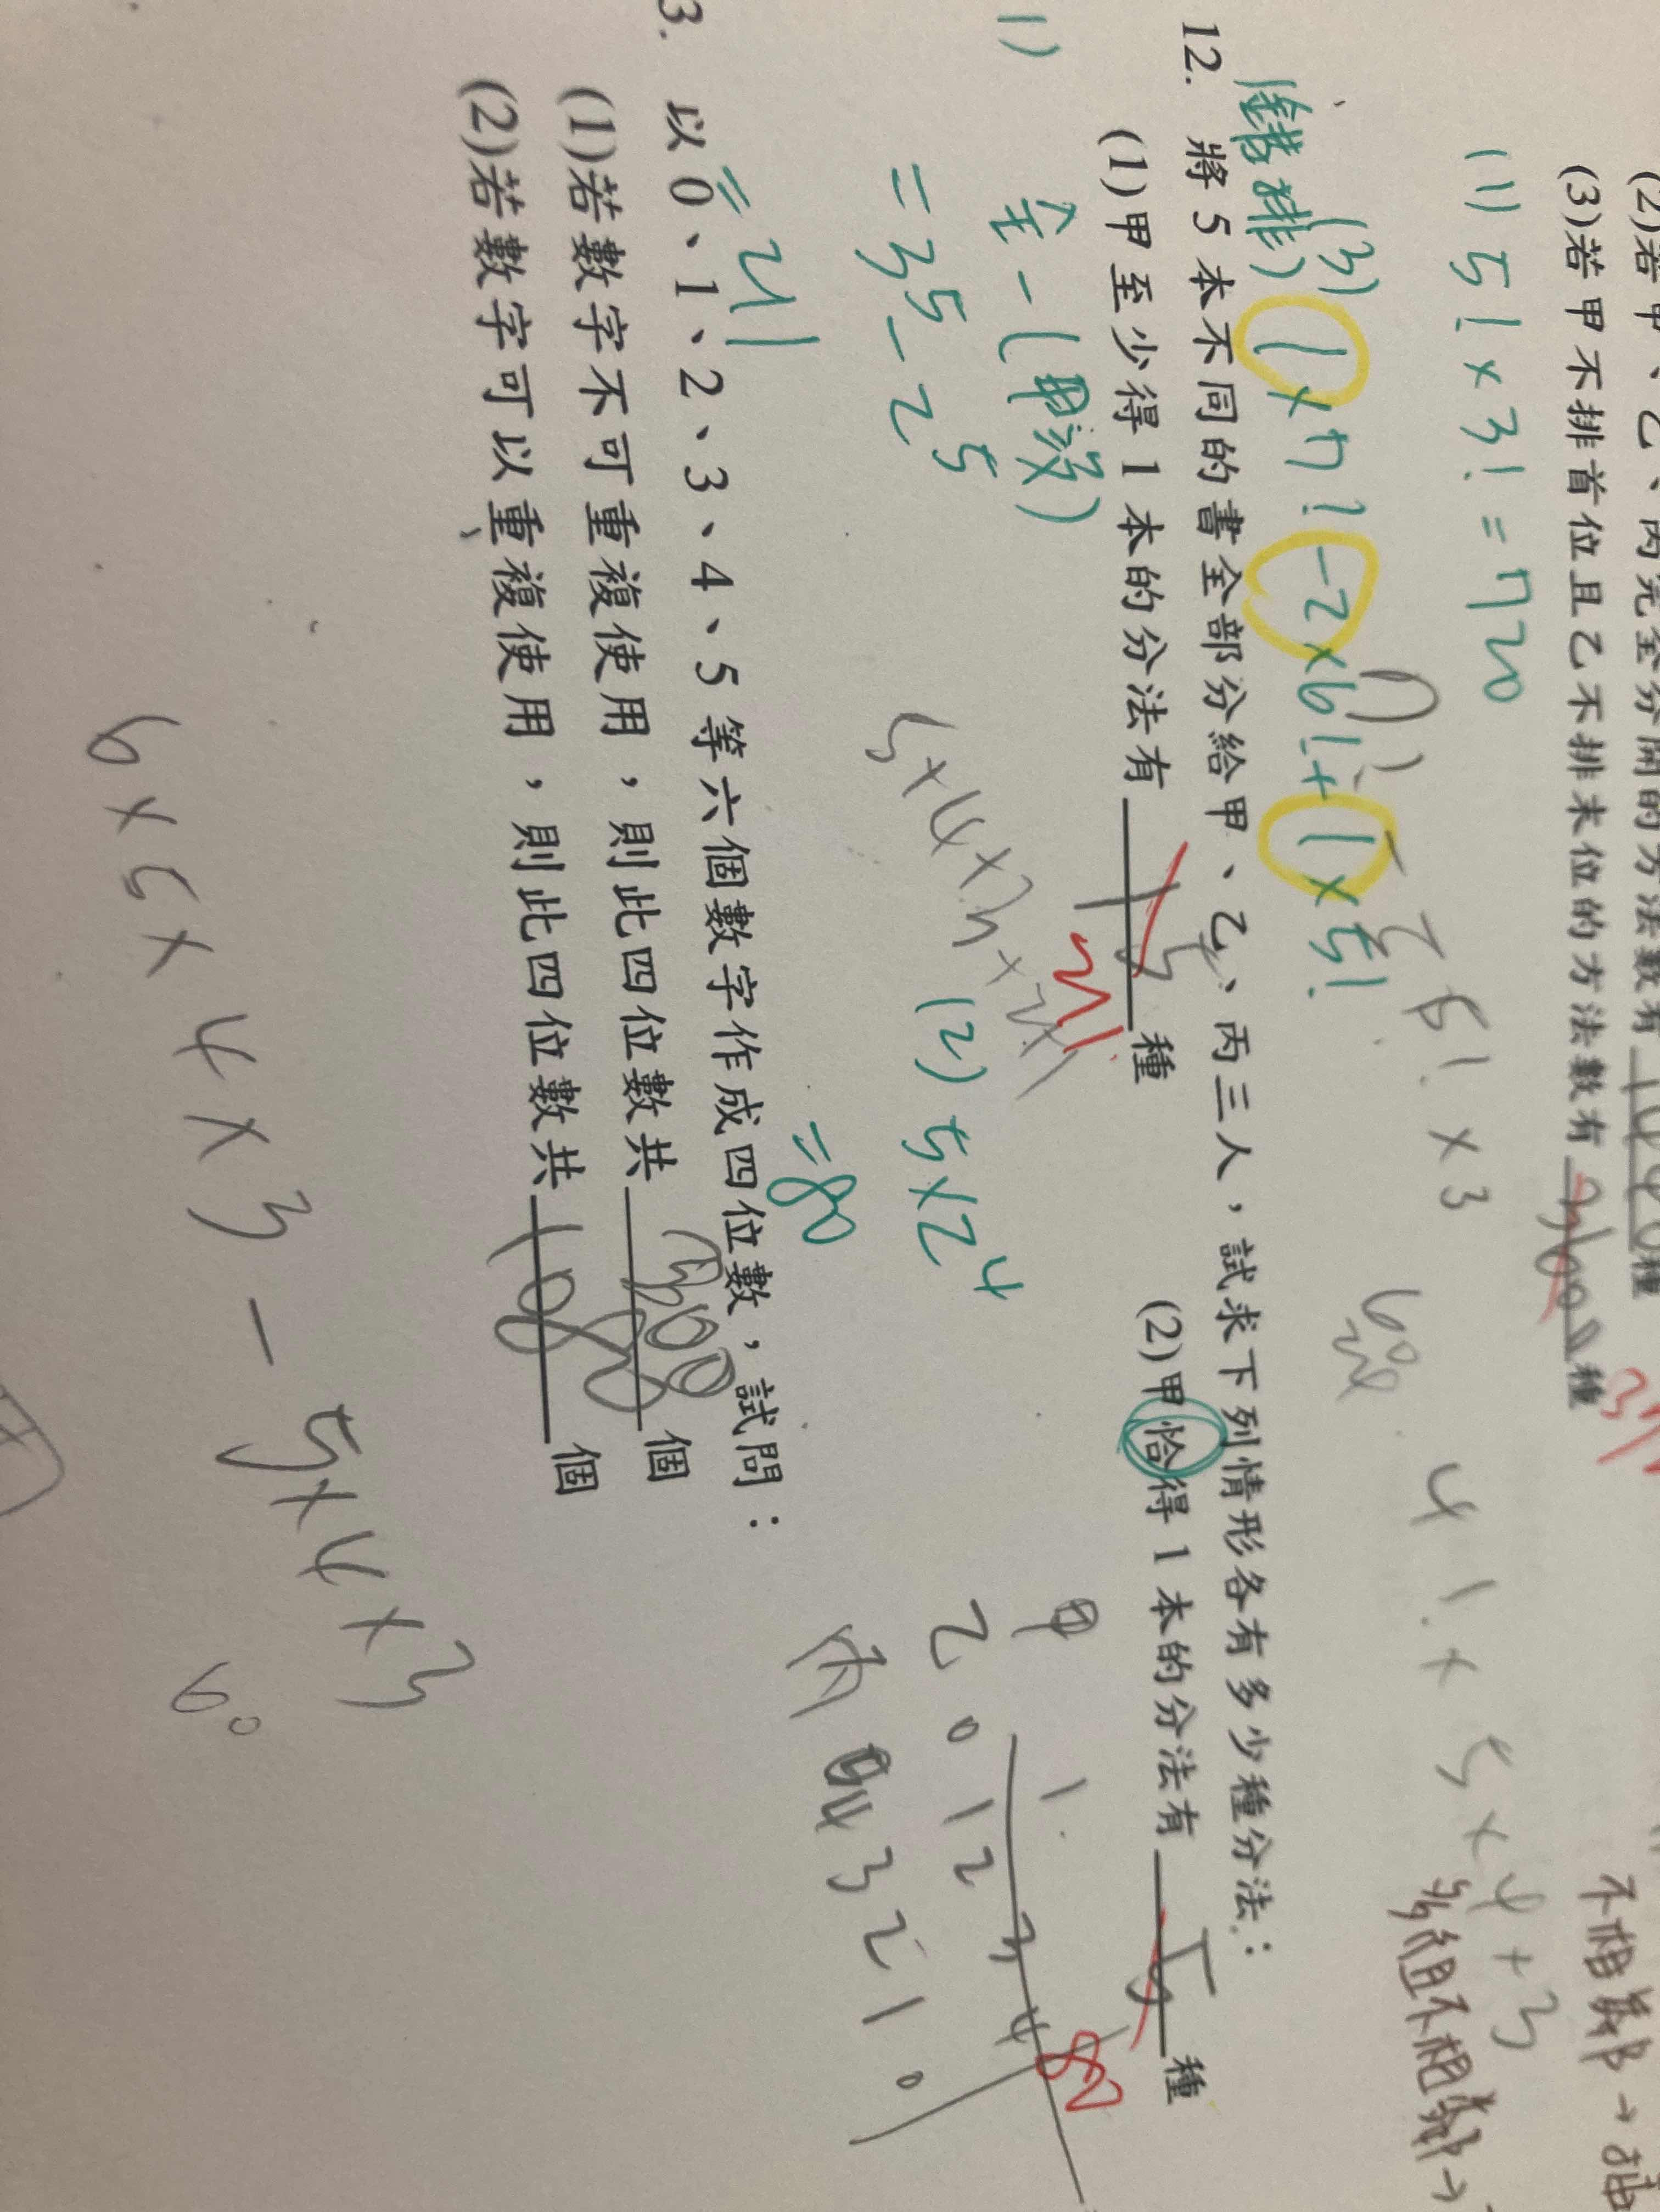 (2)若甲、乙、丙完全分開的方法數有 1440 種
(3)若甲不排首位且乙不排末位的方法數有 種
不相鄰→插
(1) 5! × 3! = 720
6! × 3
4! × 5 × 4 × 3
多組不相鄰→
(錯排) (3) 1 × 7! - 2 × 6! + 1 × 5!
12. 將 5 本不同的書全部分給甲、乙、丙三人，試求下列情形各有多少種分法：
(1)甲至少得 1 本的分法有 種 (2)甲恰得 1 本的分法有 種
15
211
15
80
1) 全 - (甲沒)
= 3⁵ - 2⁵
= 211
5×4×3×2×1
(2) 5×2⁴
= 80
甲 1
乙 0 1 2 3 4
丙 4 3 2 1 0
3. 以 0、1、2、3、4、5 等六個數字作成四位數，試問：
(1)若數字不可重複使用，則此四位數共 300 個
(2)若數字可以重複使用，則此四位數共 1080 個
6 × 5 × 4 × 3 - 5×4×3
60